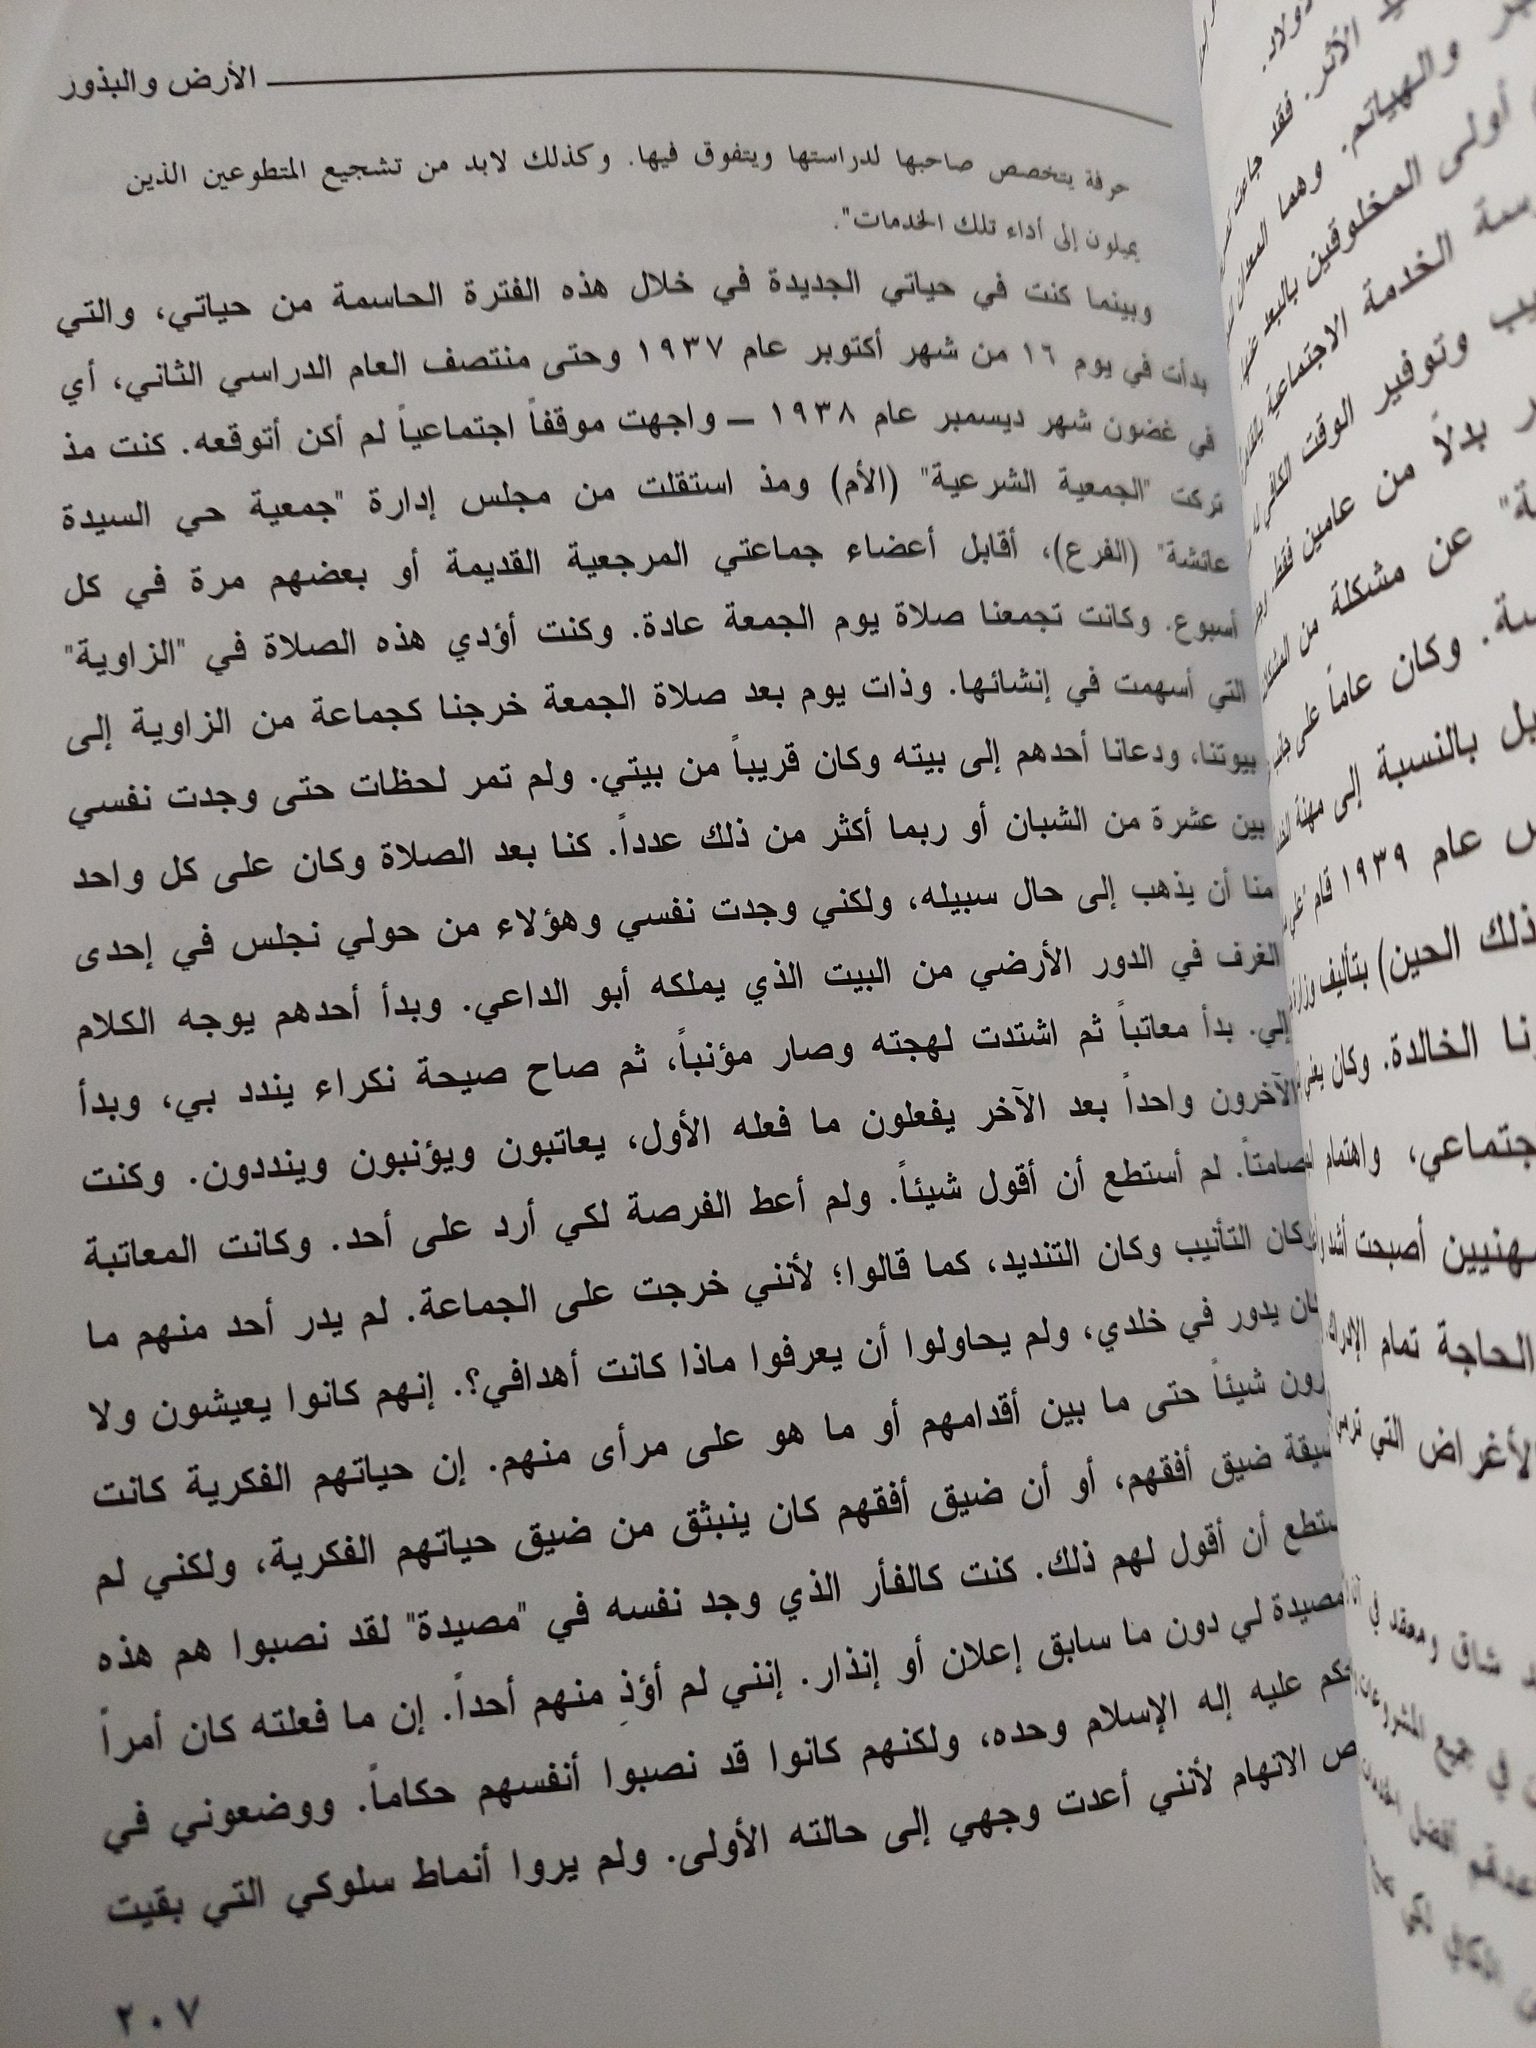 الأرض والبذور
حرفة يتخصص صاحبها لدراستها ويتفوق فيها. وكذلك لابد من تشجيع المتطوعين الذين
يميلون إلى أداء تلك الخدمات".
وبينما كنت في حياتي الجديدة في خلال هذه الفترة الحاسمة من حياتي، والتي
بدأت في يوم ١٦ من شهر أكتوبر عام ١٩٣٧ وحتى منتصف العام الدراسي الثاني، أي
في غضون شهر ديسمبر عام ١٩٣٨ ــ واجهت موقفاً اجتماعياً لم أكن أتوقعه. كنت مذ
تركت "الجمعية الشرعية" (الأم) ومذ استقلت من مجلس إدارة "جمعية حي السيدة
عائشة" (الفرع)، أقابل أعضاء جماعتي المرجعية القديمة أو بعضهم مرة في كل
أسبوع. وكانت تجمعنا صلاة يوم الجمعة عادة. وكنت أؤدي هذه الصلاة في "الزاوية"
التي أسهمت في إنشائها. وذات يوم بعد صلاة الجمعة خرجنا كجماعة من الزاوية إلى
بيوتنا، ودعانا أحدهم إلى بيته وكان قريباً من بيتي. ولم تمر لحظات حتى وجدت نفسي
بين عشرة من الشبان أو ربما أكثر من ذلك عدداً. كنا بعد الصلاة وكان على كل واحد
منا أن يذهب إلى حال سبيله، ولكني وجدت نفسي وهؤلاء من حولي نجلس في إحدى
الغرف في الدور الأرضي من البيت الذي يملكه أبو الداعي. وبدأ أحدهم يوجه الكلام
إلي. بدأ معاتباً ثم اشتدت لهجته وصار مؤنباً، ثم صاح صيحة نكراء يندد بي، وبدأ
الآخرون واحداً بعد الآخر يفعلون ما فعله الأول، يعاتبون ويؤنبون وينددون. وكنت
صامتاً. لم أستطع أن أقول شيئاً. ولم أعط الفرصة لكي أرد على أحد. وكانت المعاتبة
وكان التأنيب وكان التنديد، كما قالوا؛ لأنني خرجت على الجماعة. لم يدر أحد منهم ما
كان يدور في خلدي، ولم يحاولوا أن يعرفوا ماذا كانت أهدافي؟. إنهم كانوا يعيشون ولا
رون شيئاً حتى ما بين أقدامهم أو ما هو على مرأى منهم. إن حياتهم الفكرية كانت
ضيق أفقهم، أو أن ضيق أفقهم كان ينبثق من ضيق حياتهم الفكرية، ولكني لم
ستطع أن أقول لهم ذلك. كنت كالفأر الذي وجد نفسه في "مصيدة" لقد نصبوا هم هذه
مصيدة لي دون ما سابق إعلان أو إنذار. إنني لم أؤذِ منهم أحداً. إن ما فعلته كان أمراً
حكم عليه إله الإسلام وحده، ولكنهم كانوا قد نصبوا أنفسهم حكاماً. ووضعوني في
ص الاتهام لأنني أعدت وجهي إلى حالته الأولى. ولم يروا أنماط سلوكي التي بقيت
٢٠٧
والهياتم. وهما
أولى المخلوقين بالبعد
الخدمة الاجتماعية
وتوفير الوقت الكافي
بدلاً من عامين فقط.
عن مشكلة من
وكان عاماً على
بالنسبة إلى مهنة
عام ١٩٣٩ قام
ذلك الحين) بتأليف
نا الخالدة. وكان
جتماعي، واهتمام
هنيين أصبحت أشد
الحاجة تمام
لأغراض التي
شاق ومعقد في
في جميع
أفضل